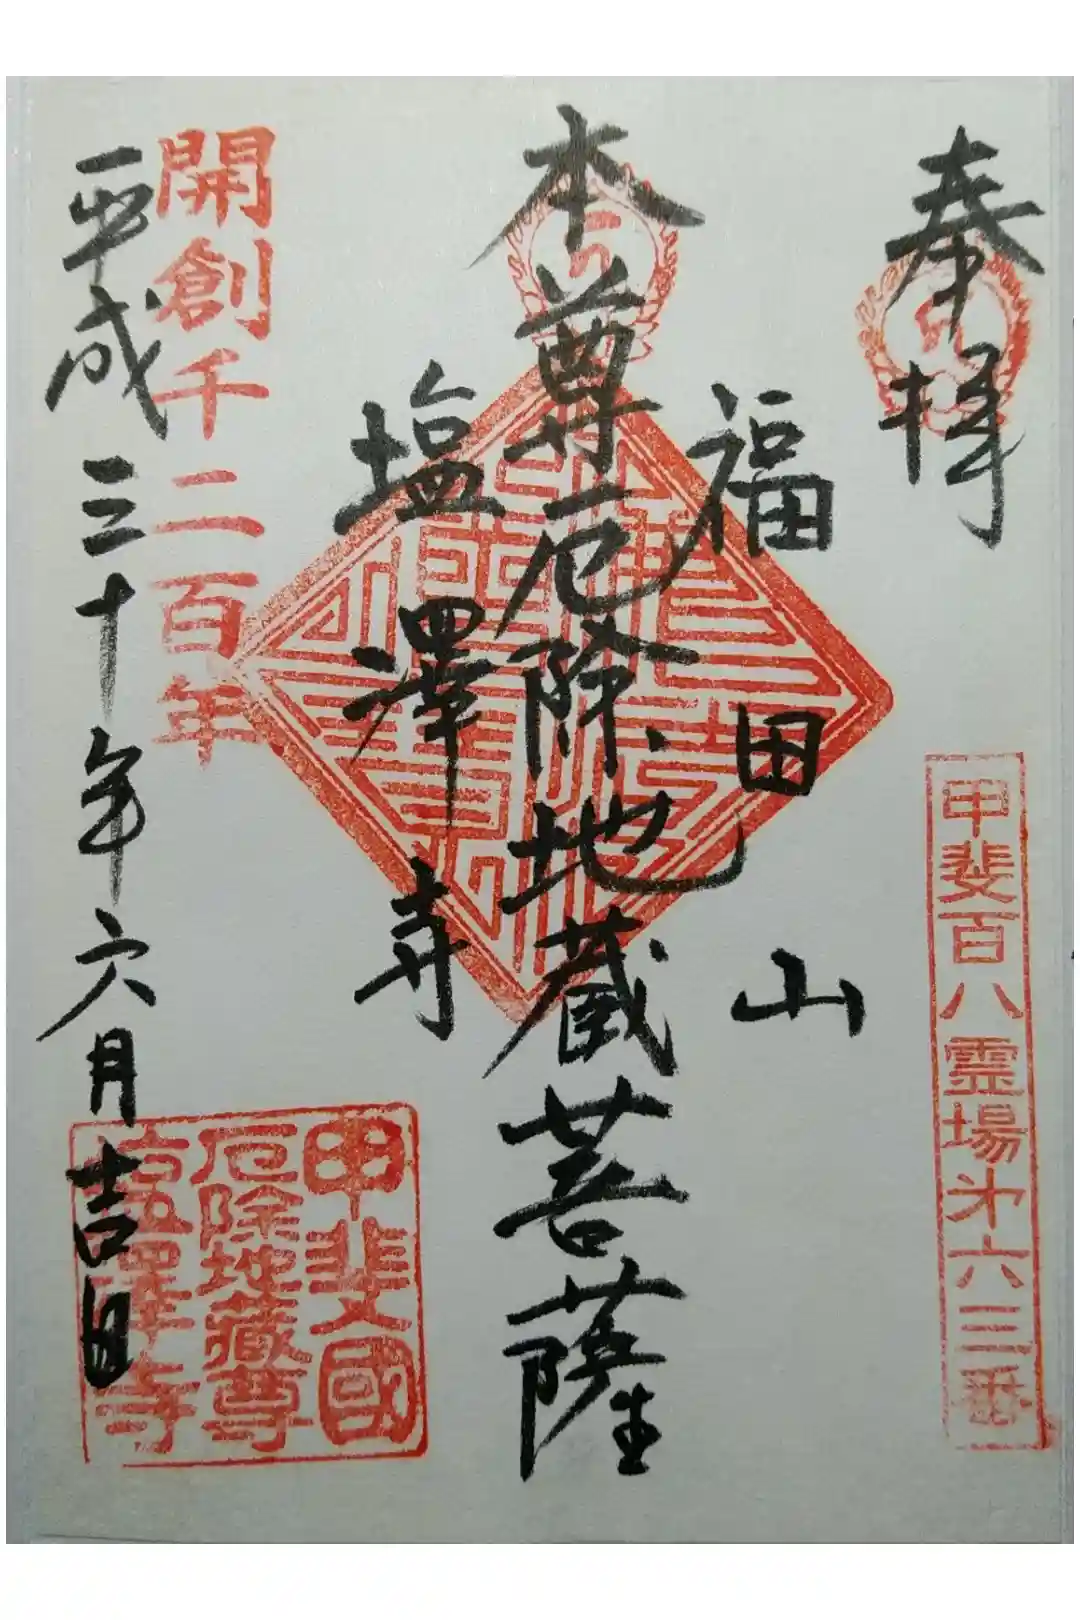 奉拝
甲斐百八霊場第六三番
福田山
本尊厄除地蔵菩薩
塩澤寺
開創千二百年
平成三十年六月吉日
甲斐國
厄除地藏尊
塩澤寺